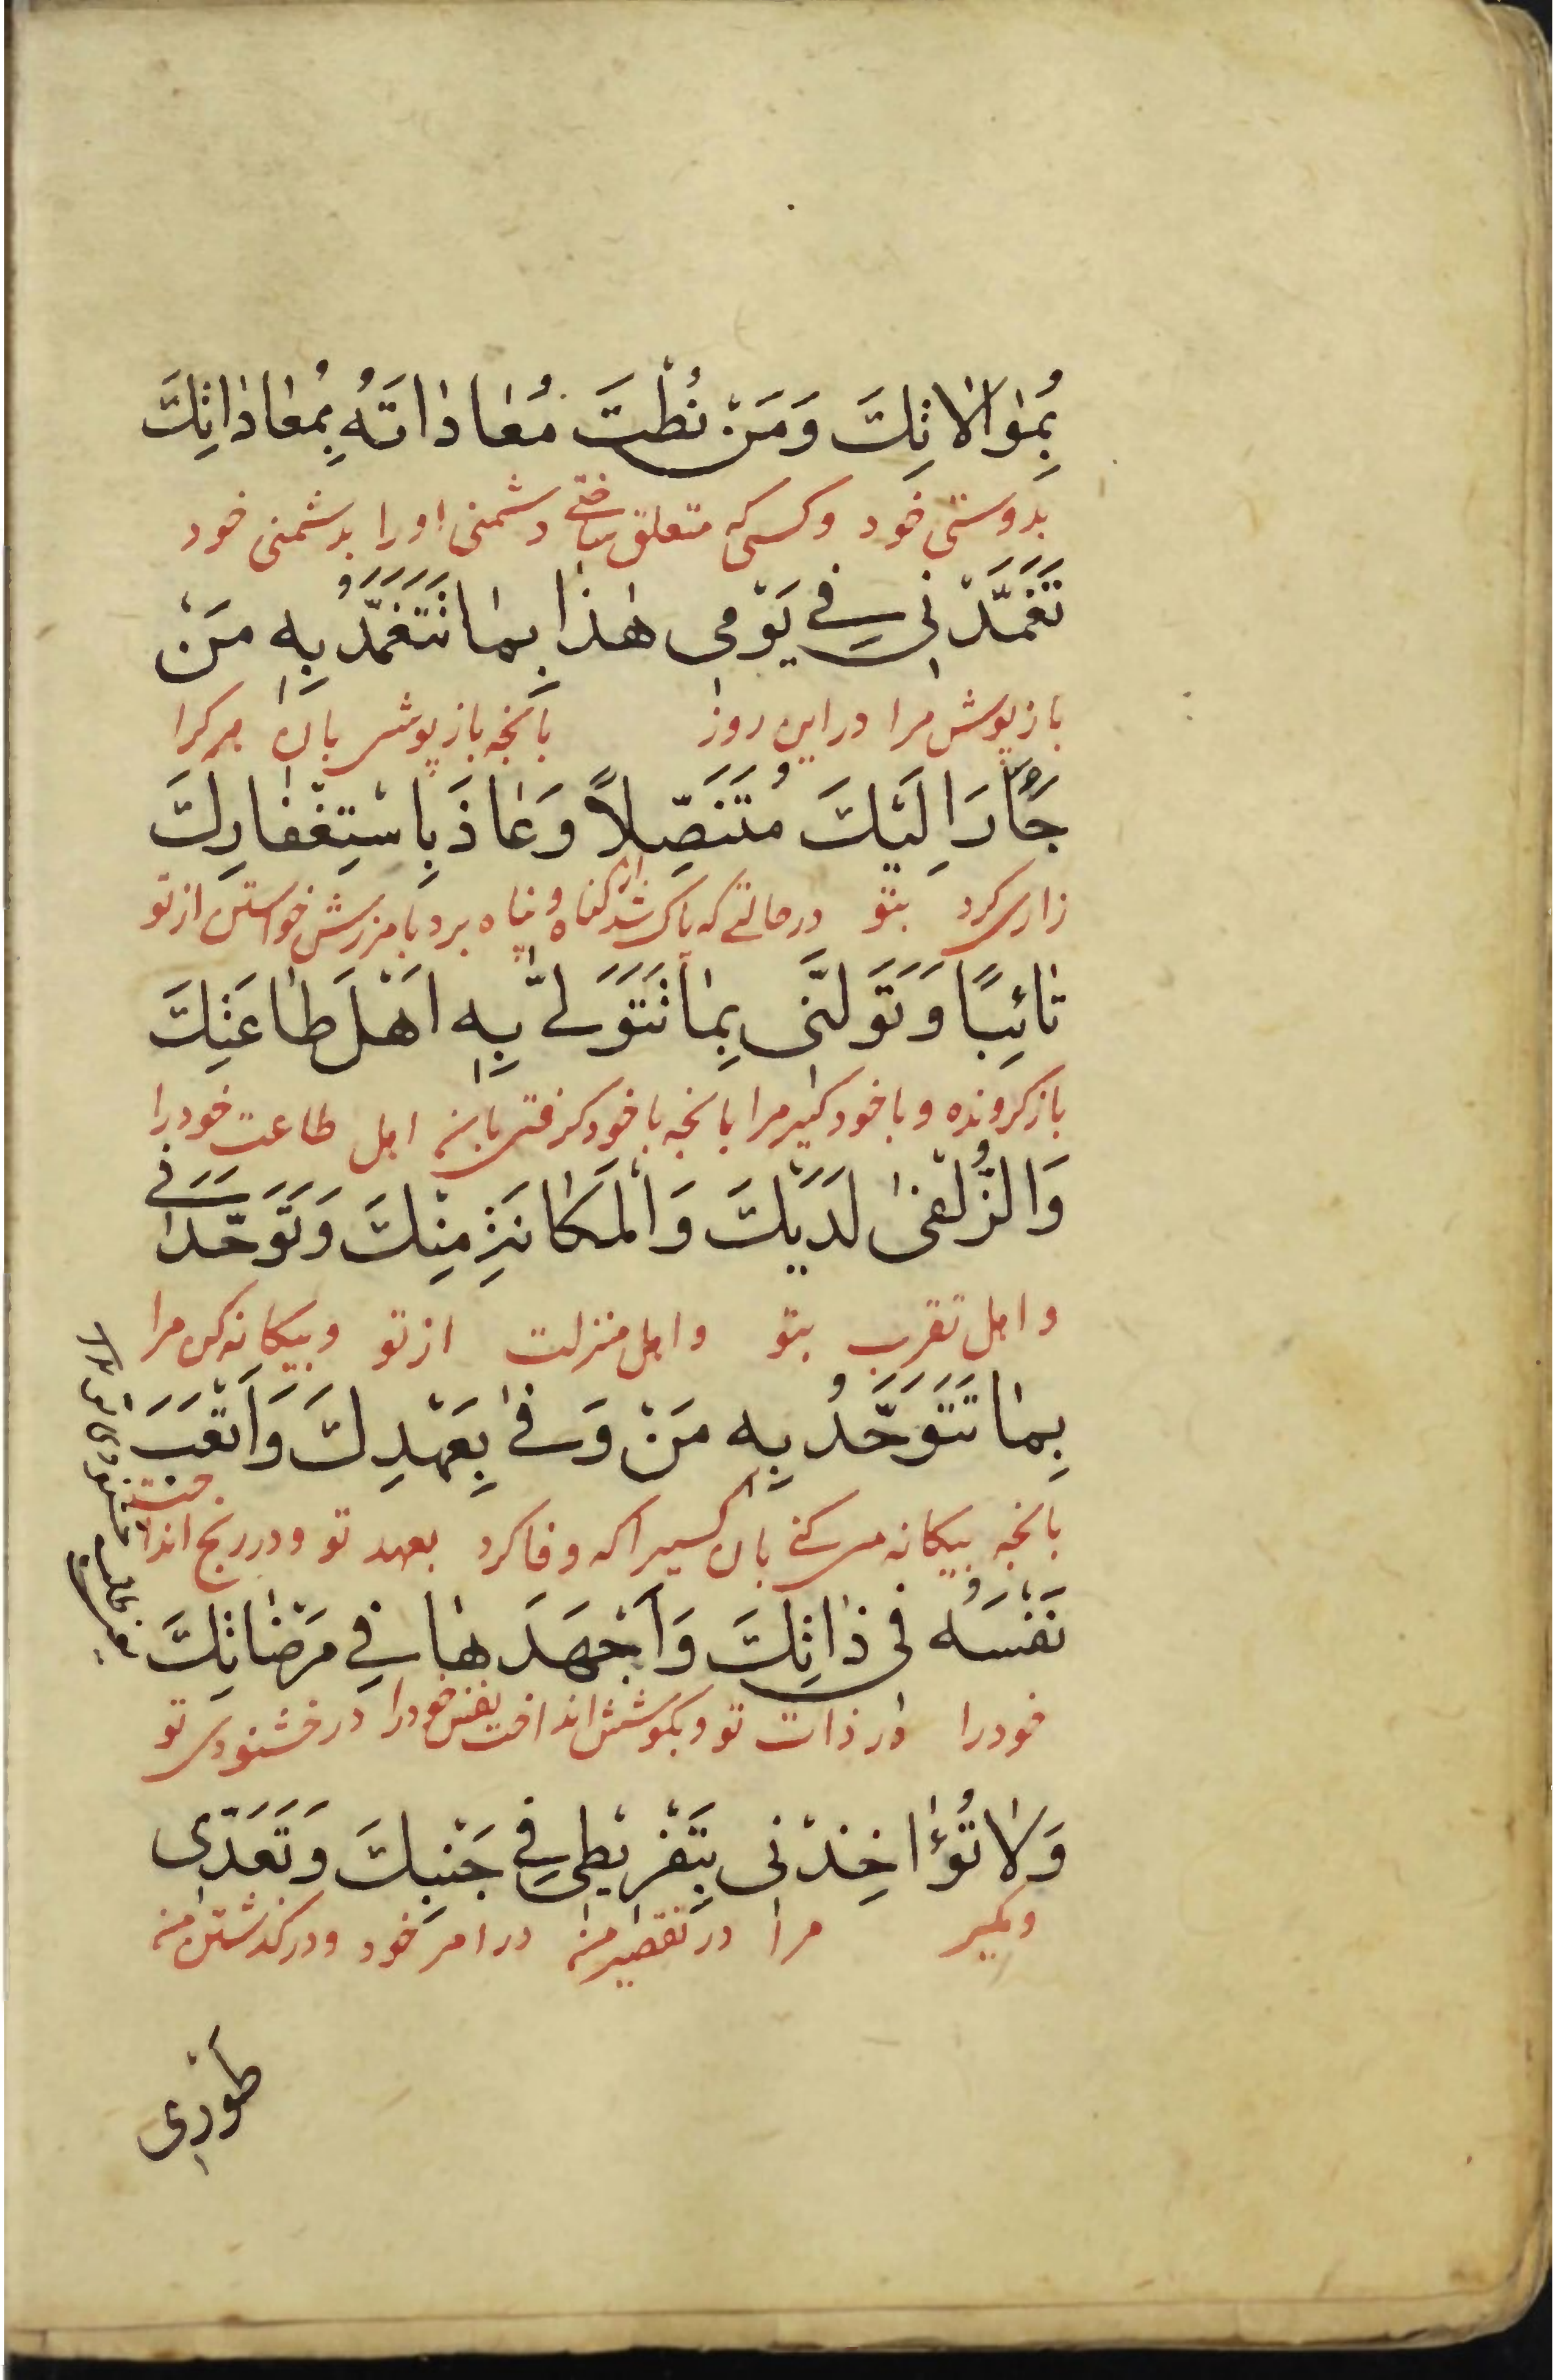 بِمُوٰالاٰتِكَ وَمَنْ نُطْتَ مُعٰادٰاتَهُ بِمُعٰادٰاتِكَ
بدوستی خود و کسی که متعلق ساختی دشمنی او را بدشمنی خود
تَغَمَّدْنِي فِي يَوْمِي هٰذٰا بِمٰا تَتَغَمَّدُ بِهِ مَنْ
باز پوش مرا در این روز بانچه باز پوشی بان هر کرا
جَأَرَ اِلَيْكَ مُتَنَصِّلاً وَعٰاذَ بِاسْتِغْفٰارِكَ
زاری کرد بتو در حالتی که پاک شد از گناه و پناه برد بامرزش خواستن از تو
تٰائِبًا وَتَوَلَّنِي بِمٰا تَتَوَلّٰى بِهِ اَهْلَ طٰاعَتِكَ
باز کرونده و با خود کیر مرا بانچه با خود کرفتی بانه اهل طاعت خود را
وَالزُّلْفىٰ لَدَيْكَ وَالْمَكٰانَةِ مِنْكَ وَتَوَحَّدْنِي
و اهل تقرب بتو و اهل منزلت از تو و بیکانه کن مرا
بِمٰا تَتَوَحَّدُ بِهِ مَنْ وَفىٰ بِعَهْدِكَ وَاَتْعَبَ
بانچه بیکانه می کنی بان کسیرا که وفا کرد بعهد تو و در رنج انداخت
نَفْسَهُ فِي ذٰاتِكَ وَاَجْهَدَهٰا فِي مَرْضٰاتِكَ
خود را در ذات تو و بکوشش انداخت نفس خود را در خشنودی تو
وَلاٰ تُؤٰاخِذْنِي بِتَفْرِيْطِي فِي جَنْبِكَ وَتَعَدِّي
و مکیر مرا در تقصیر من در امر خود و در کذشتن من
طَوْرِي